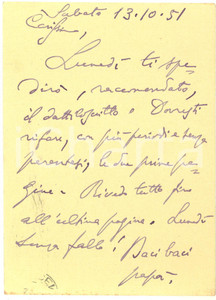 Sabato 13.10.51
Carissima,
Lunedì ti spe-
dirò, raccomandato,
il dattiloscritto. Dovresti
rifare, con più periodi e senza
parentesi, le due prime pa-
gine. Rivedi tutto fino
all'ultima pagina. Lunedì
senza fallo! Baci baci
papà.